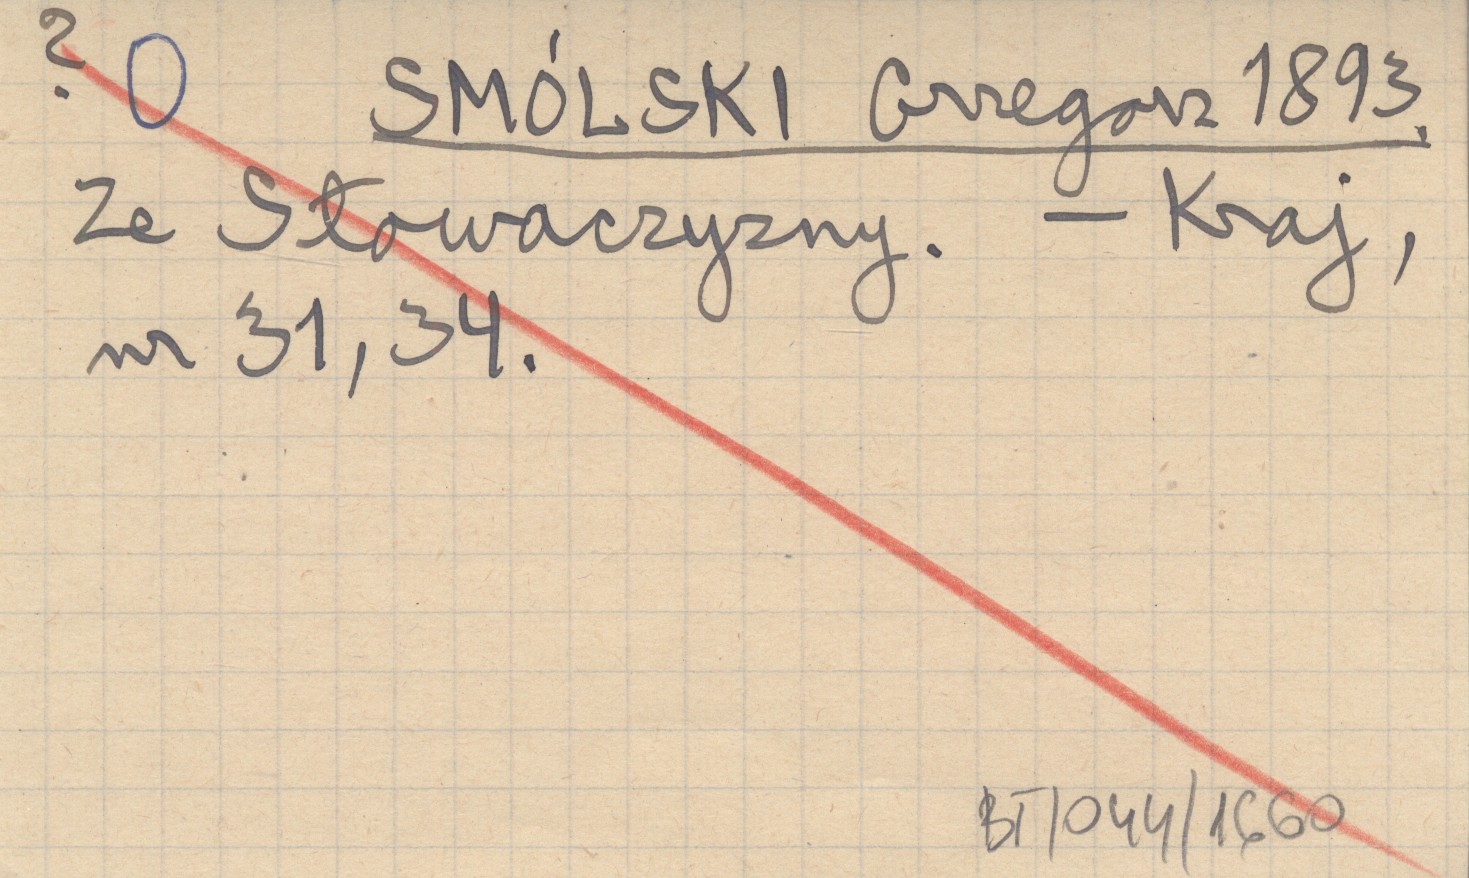 ? O SMÓLSKI Grzegorz 1893.
Ze Słowaczyzny. — Kraj,
nr 31, 34.
BT/044/1660